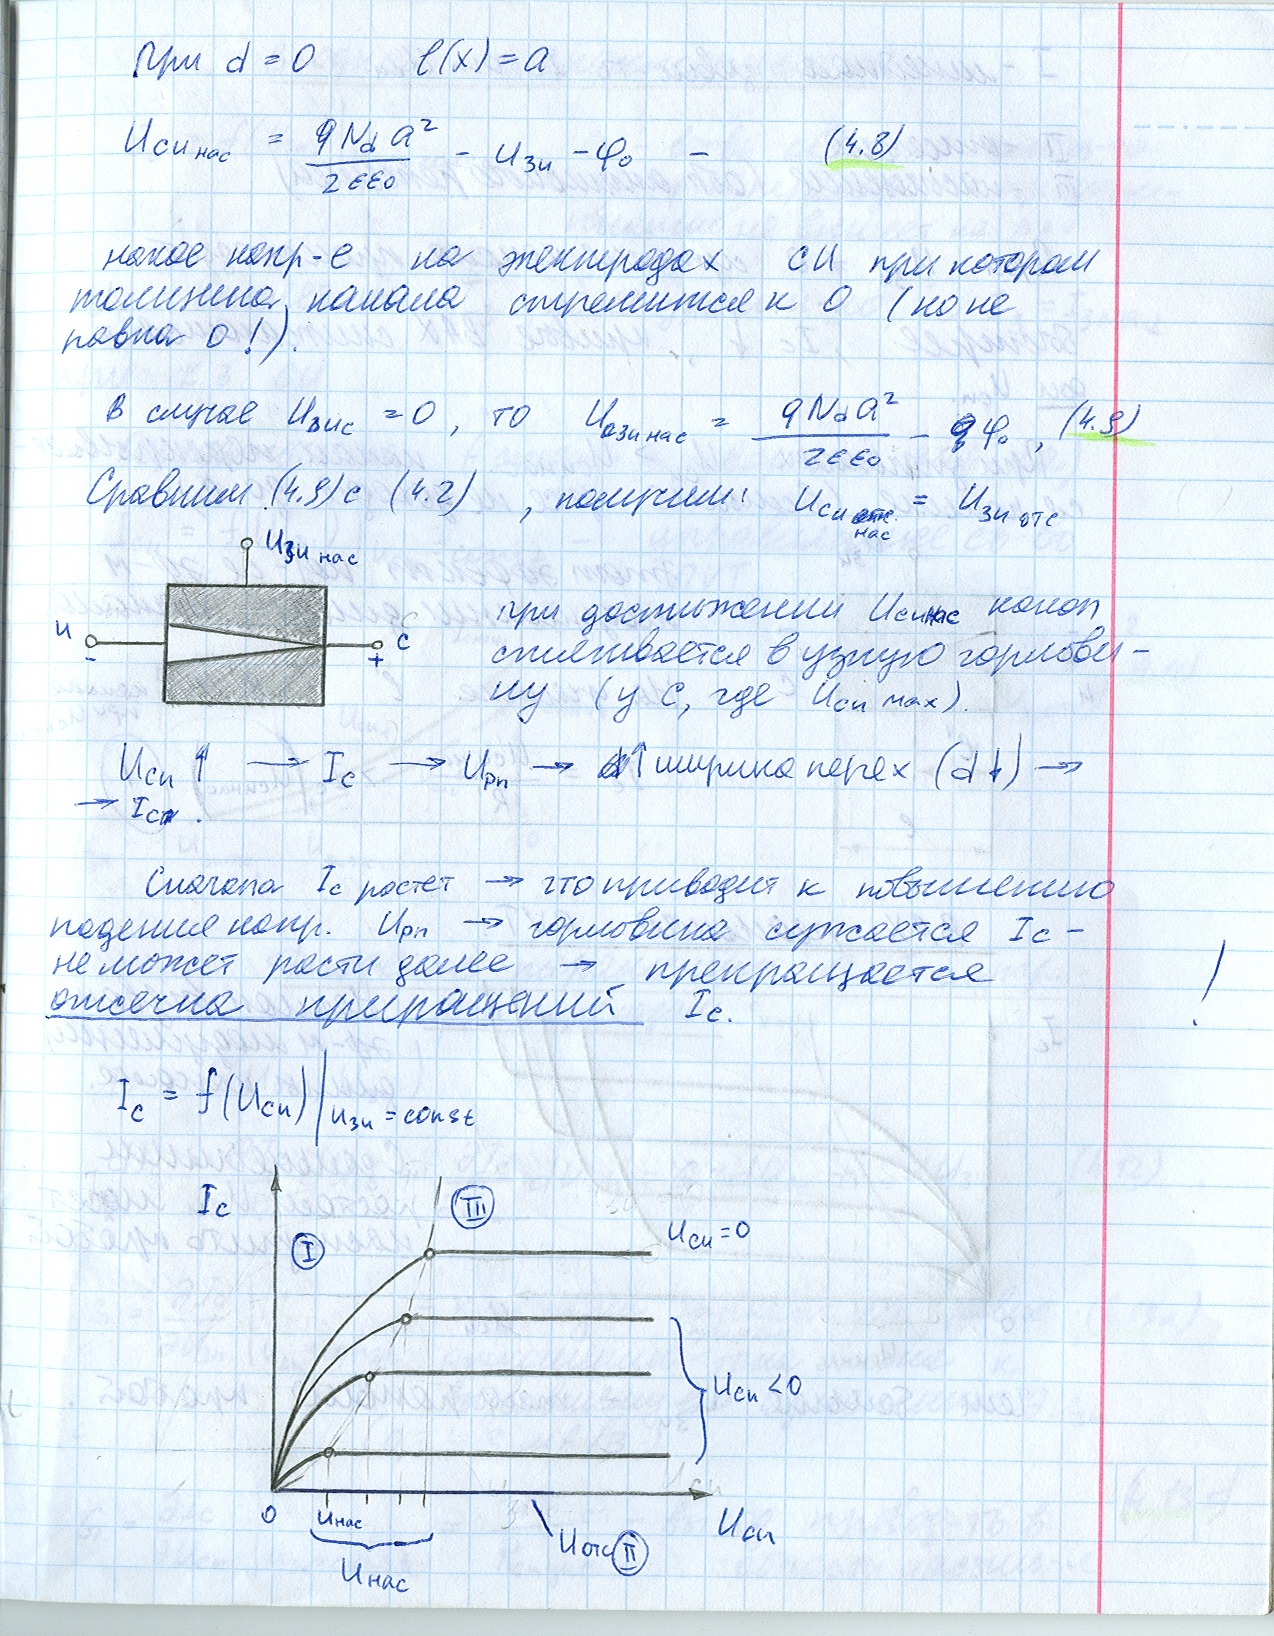 При d = 0 l(x) = a
Uси нас = qNd a² / 2εε₀ - Uзи - φ₀ - (4.8)
такое напр-е на электродах СИ при котором
толщина канала стремится к 0 (но не
равна 0!).
В случае = 0, то = qNd a² / 2εε₀ - φ₀, (4.9)
Сравним (4.9) с (4.2), получим: Uси нас = Uзи отс
Uзи нас
и
-
с
+
При достижении Uси нас канал
стягивается в узкую горлови-
ну (у С, где Uси max).
Uси ↑ → Iс → Uрп → ↑ ширина перех (d↓) →
→ Iс .
Сначала Iс растет → что приводит к повышению
падения напр. Uрп → горловина сужается Iс -
не может расти далее → прекращается
отсечка приращений Iс. !
Iс = f(Uси) | Uзи = const
Iс
I
III
Uси = 0
Uси < 0
0
Uнас
Uнас
Uотс II
Uси